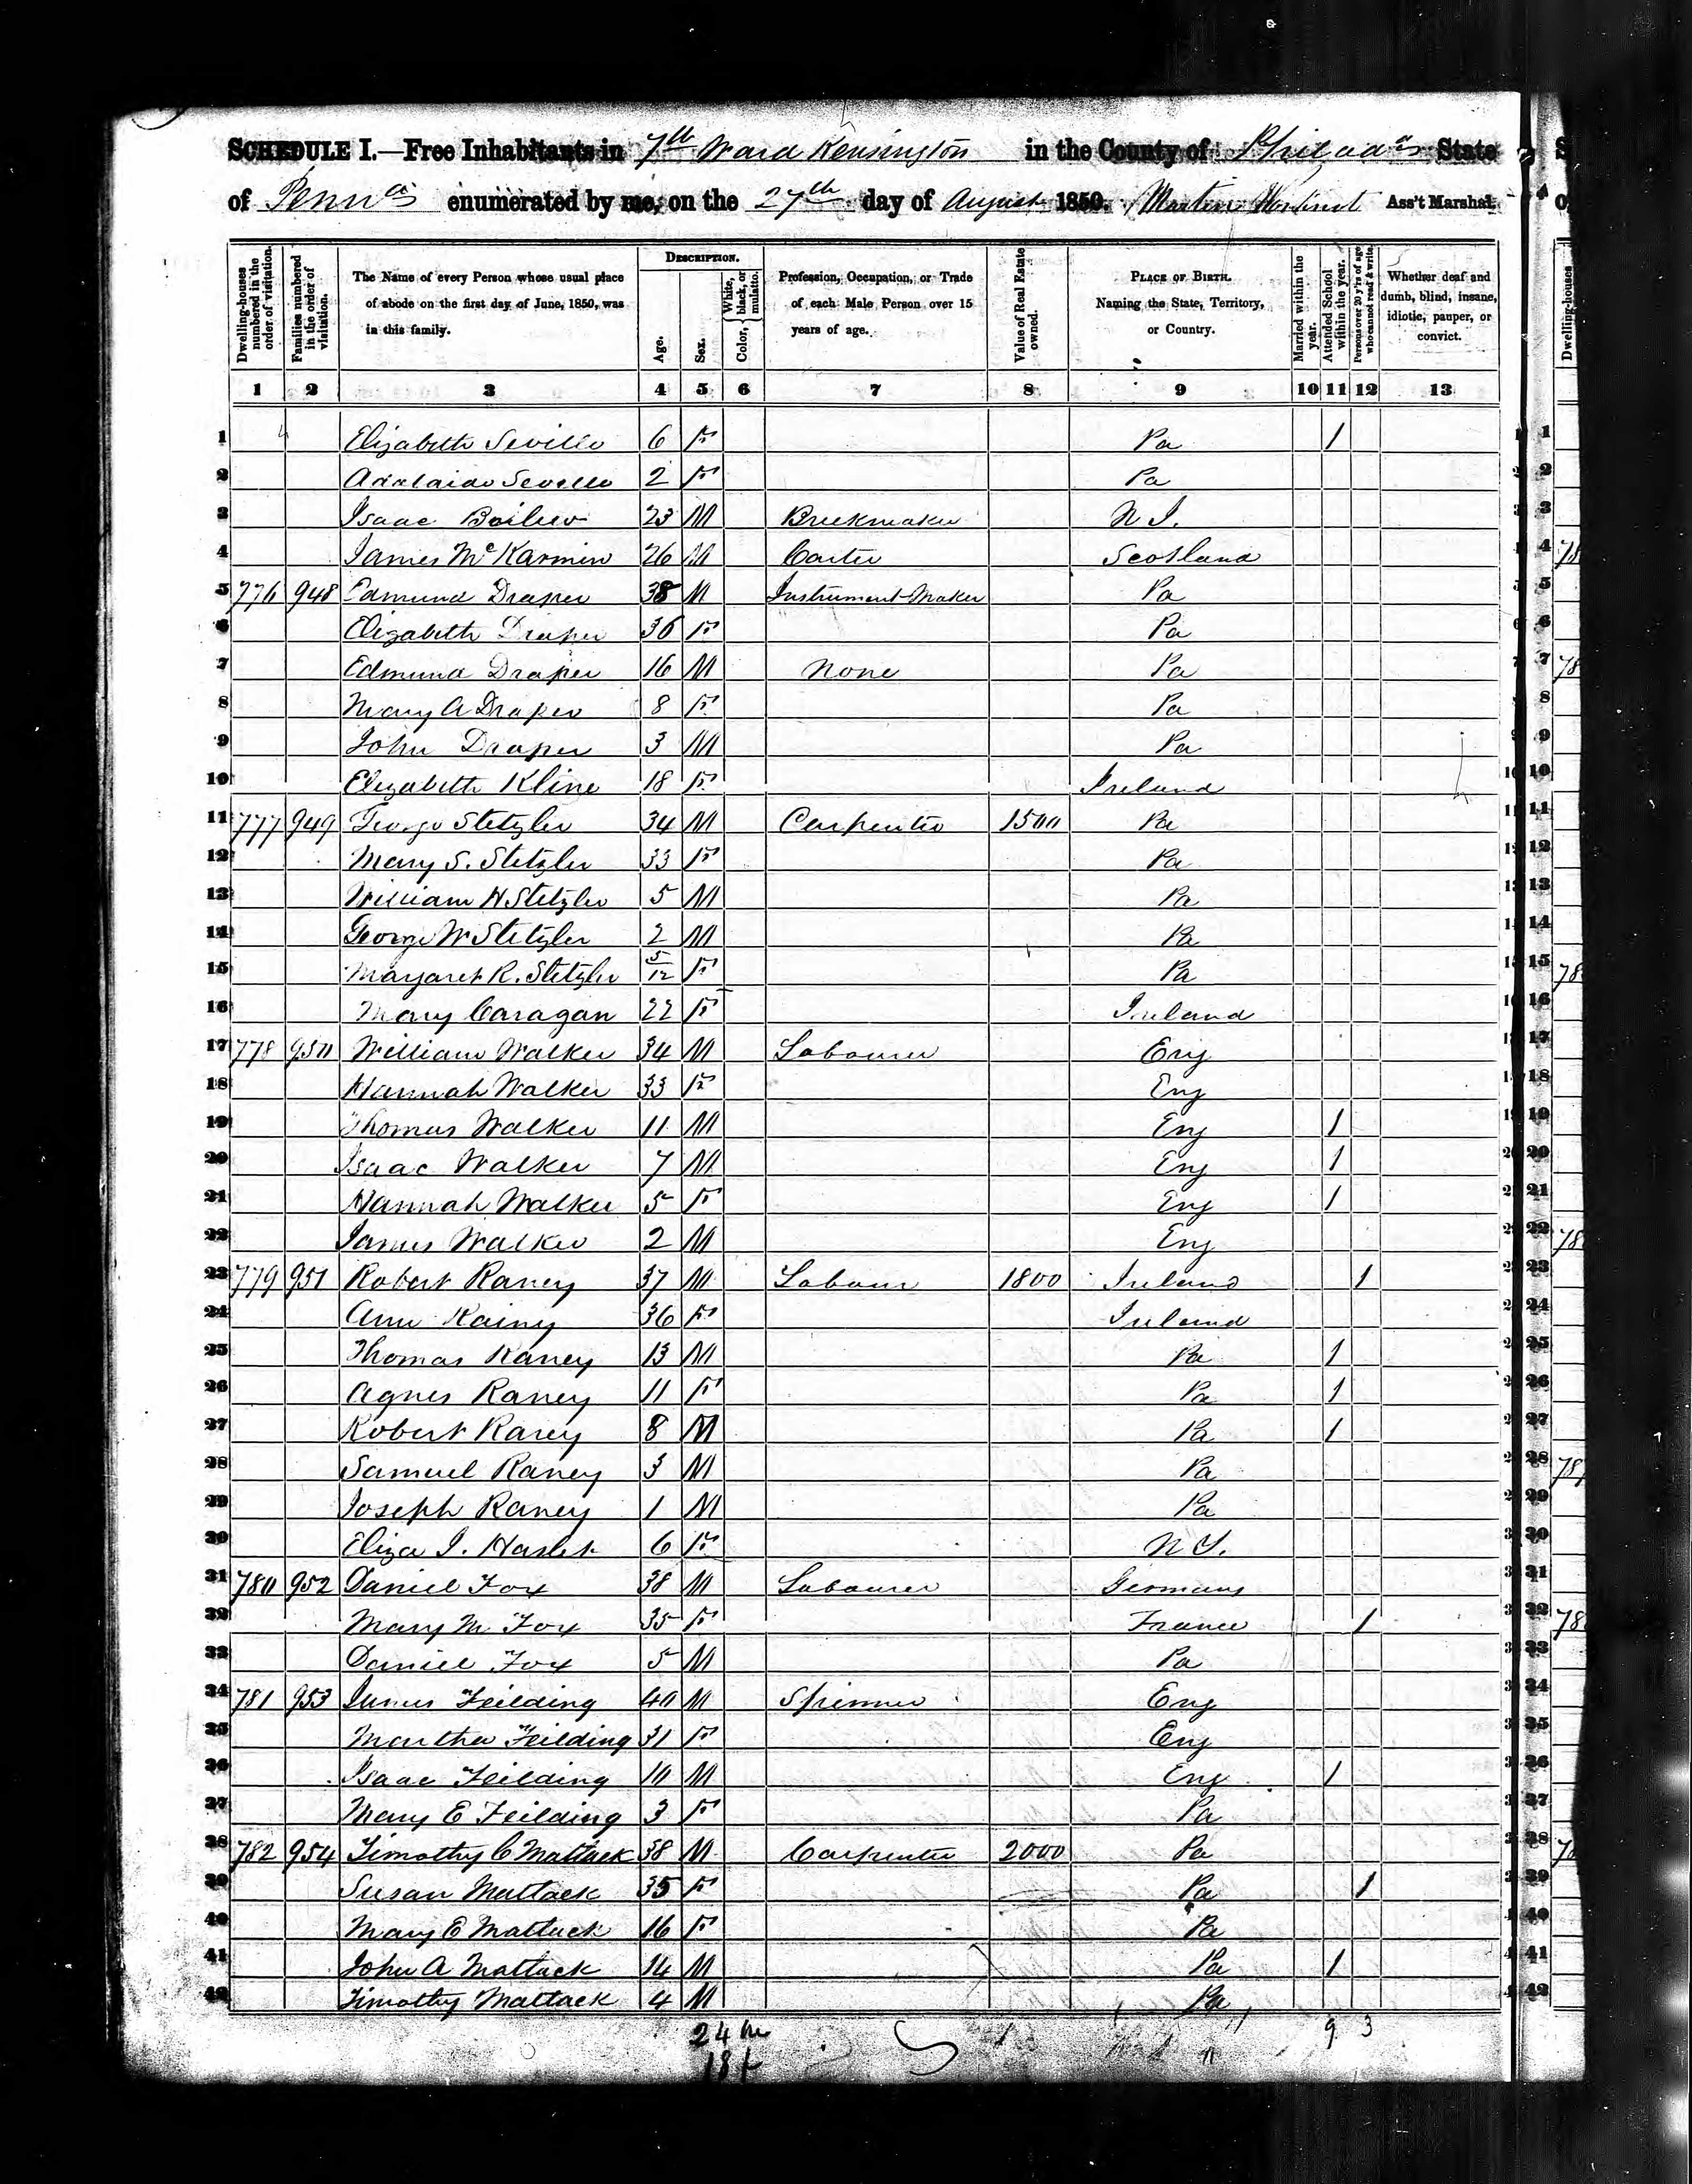 SCHEDULE I.—Free Inhabitants in 7th Ward Kensington in the County of Philada State
of Penna enumerated by me, on the 27th day of August 1850. Martin Ass't Marshal.
Dwelling-houses numbered in the order of visitation.
Families numbered in the order of visitation.
The Name of every Person whose usual place of abode on the first day of June, 1850, was in this family.
DESCRIPTION.
Age.
Sex.
Color, { White, black, or mulatto.
Profession, Occupation, or Trade of each Male Person over 15 years of age.
Value of Real Estate owned.
PLACE OF BIRTH. Naming the State, Territory, or Country.
Married within the year.
Attended School within the year.
Persons over 20 y'rs of age who cannot read & write.
Whether deaf and dumb, blind, insane, idiotic, pauper, or convict.
1 2 3 4 5 6 7 8 9 10 11 12 13
1 Elizabeth Seville 6 F Pa 1
2 Adalaide Seville 2 F Pa
3 Isaac 23 M Brickmaker N J.
4 James McKarmin 26 M Carter Scotland
5 776 948 Edmund Draper 38 M Instrument Maker Pa
6 Elizabeth Draper 36 F Pa
7 Edmund Draper 16 M None Pa
8 Mary A Draper 8 F Pa
9 John Draper 3 M Pa
10 Elizabeth Kline 18 F Ireland
11 777 949 George Stetzler 34 M Carpenter 1500 Pa
12 Mary S. Stetzler 33 F Pa
13 William H Stetzler 5 M Pa
14 George W Stetzler 2 M Pa
15 Margaret R. Stetzler 5/12 F Pa
16 Mary Caragan 22 F Ireland
17 778 950 William Walker 34 M Labourer Eng
18 Hannah Walker 33 F Eng
19 Thomas Walker 11 M Eng 1
20 Isaac Walker 7 M Eng 1
21 Hannah Walker 5 F Eng 1
22 James Walker 2 M Eng
23 779 951 Robert Raney 37 M Labour 1800 Ireland 1
24 Ann Rainy 36 F Ireland
25 Thomas Raney 13 M Pa 1
26 Agnes Raney 11 F Pa 1
27 Robert Raney 8 M Pa 1
28 Samuel Raney 3 M Pa
29 Joseph Raney 1 M Pa
30 Eliza J. 6 F N Y.
31 780 952 Daniel Fox 38 M Labourer Germany
32 Mary M Fox 35 F France 1
33 Daniel Fox 5 M Pa
34 781 953 James Feilding 40 M Spinner Eng
35 Martha Feilding 31 F Eng
36 Isaac Feilding 10 M Eng 1
37 Mary E Feilding 3 F Pa
38 782 954 Timothy C Mattack 38 M Carpenter 2000 Pa
39 Susan Mattack 35 F Pa 1
40 Mary E Mattack 16 F Pa
41 John A Mattack 14 M Pa 1
42 Timothy Mattack 4 M Pa
24 m 9 3
18 f